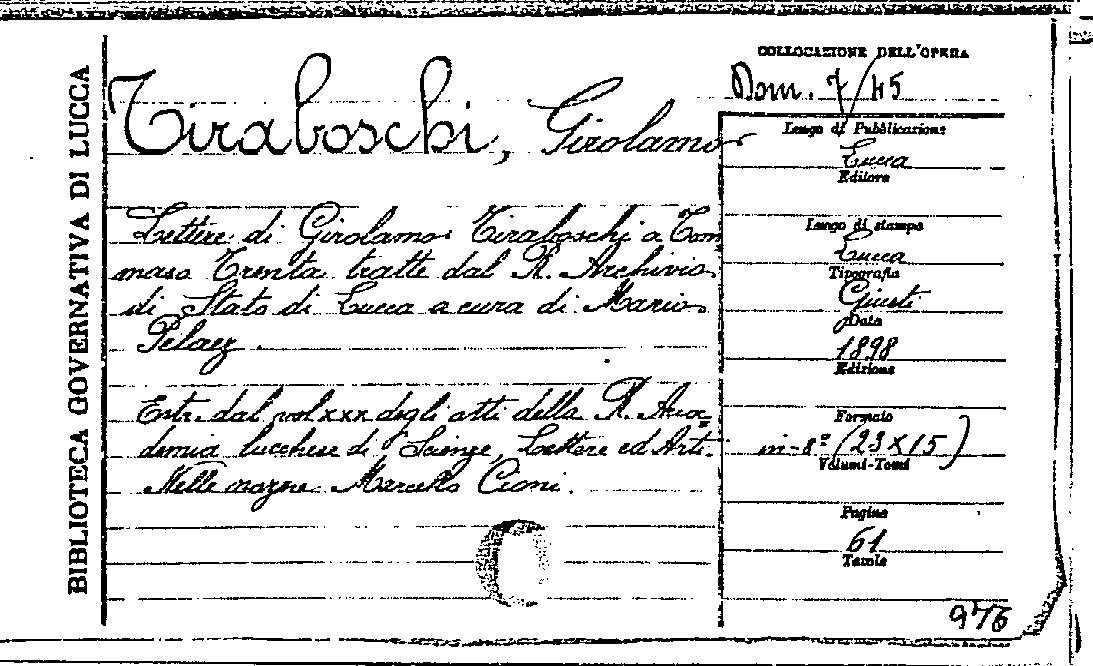 BIBLIOTECA GOVERNATIVA DI LUCCA
Tiraboschi, Girolamo
Lettere di Girolamo Tiraboschi a Tom
maso Trenta tratte dal R. Archivio
di Stato di Lucca a cura di Mario
Pelaez.
Estr. dal vol xxx degli atti della R. Acca=
demia lucchese di Scienze, Lettere ed Arti.
Nelle nozze Marcello Cioni.
COLLOCAZIONE DELL'OPERA
Dom. 7/45
Luogo di Pubblicazione
Lucca
Editore
Luogo di stampa
Lucca
Tipografia
Giusti
Data
1898
Edizione
Formato
in-8º (23x15)
Volumi-Tomi
Pagine
61
Tavole
976